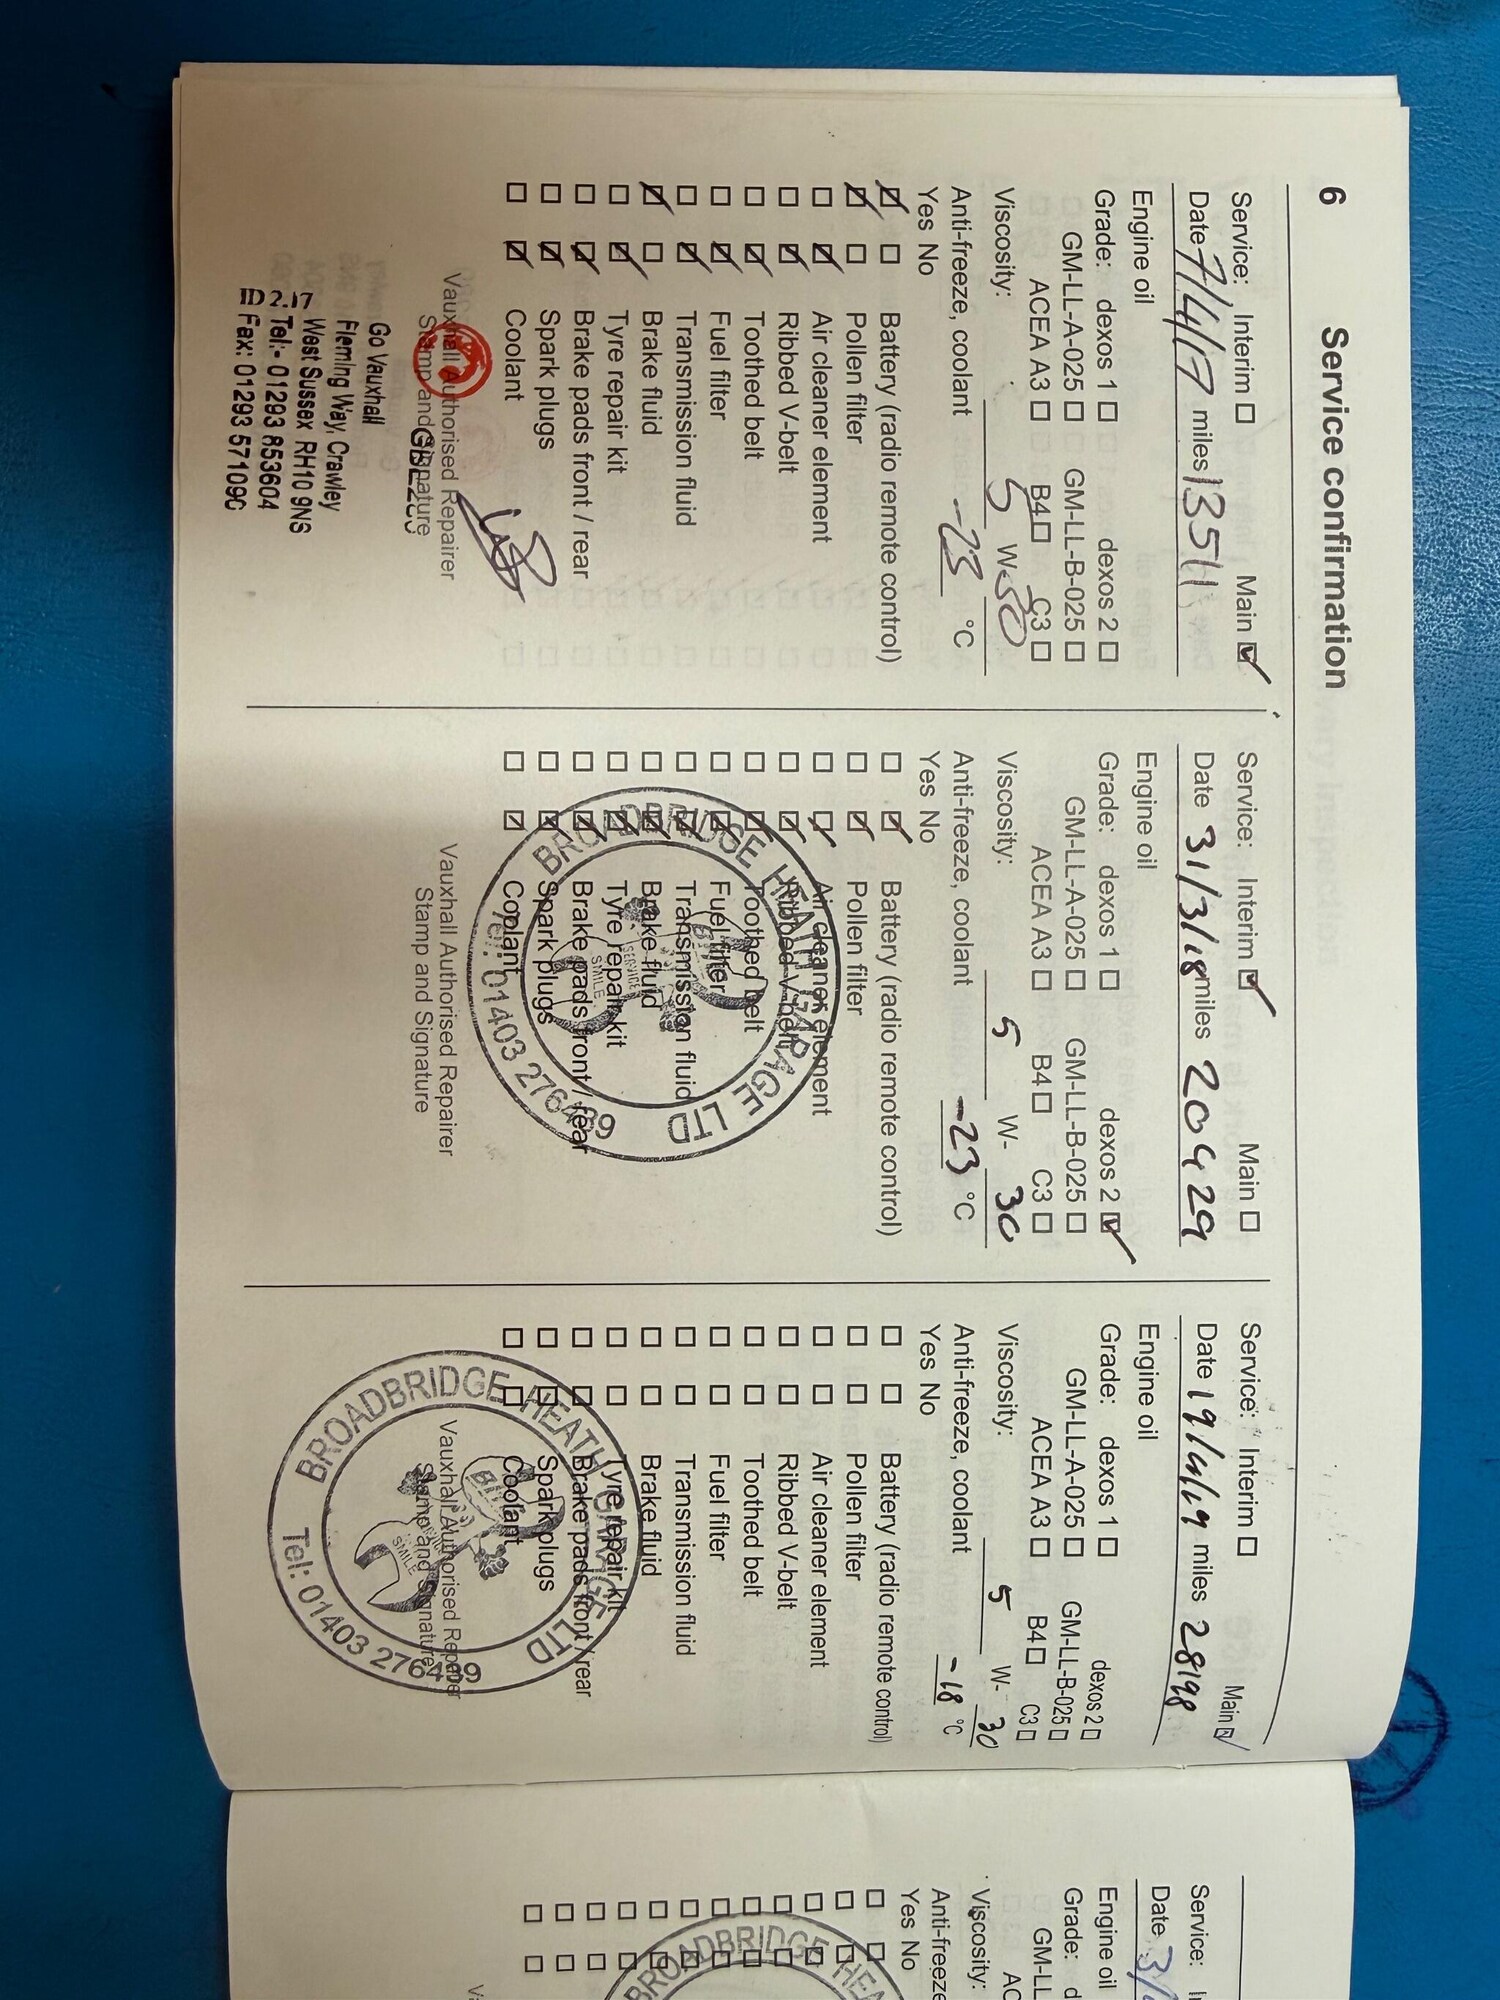 6 Service confirmation
Service: Interim ☐ Main ☑
Date 7/4/17 miles 13511
Engine oil
Grade: dexos 1 ☐ dexos 2 ☐
GM-LL-A-025 ☐ GM-LL-B-025 ☐
ACEA A3 ☐ B4 ☐ C3 ☐
Viscosity: 5 W-30
Anti-freeze, coolant -23 °C
Yes No
☑ ☐ Battery (radio remote control)
☑ ☐ Pollen filter
☐ ☑ Air cleaner element
☐ ☑ Ribbed V-belt
☐ ☑ Toothed belt
☐ ☑ Fuel filter
☐ ☑ Transmission fluid
☑ ☐ Brake fluid
☐ ☑ Tyre repair kit
☐ ☑ Brake pads front / rear
☐ ☑ Spark plugs
☐ ☑ Coolant
Vauxhall Authorised Repairer
Stamp and Signature
Go Vauxhall
Fleming Way, Crawley
West Sussex RH10 9NS
Tel:- 01293 853604
Fax: 01293 571090
Service: Interim ☑ Main ☐
Date 31/3/18 miles 20429
Engine oil
Grade: dexos 1 ☐ dexos 2 ☑
GM-LL-A-025 ☐ GM-LL-B-025 ☐
ACEA A3 ☐ B4 ☐ C3 ☐
Viscosity: 5 W- 30
Anti-freeze, coolant -23 °C
Yes No
☐ ☑ Battery (radio remote control)
☐ ☑ Pollen filter
☐ ☑ Air cleaner element
☐ ☑ Ribbed V-belt
☐ ☑ Toothed belt
☐ ☑ Fuel filter
☐ ☑ Transmission fluid
☐ ☑ Brake fluid
☐ ☑ Tyre repair kit
☐ ☑ Brake pads front / rear
☐ ☑ Spark plugs
☐ ☑ Coolant
BROADBRIDGE HEATH GARAGE LTD
SERVICE
SMILE
Tel: 01403 276489
Vauxhall Authorised Repairer
Stamp and Signature
Service: Interim ☐ Main ☑
Date 19/4/19 miles 28198
Engine oil
Grade: dexos 1 ☐ dexos 2 ☐
GM-LL-A-025 ☐ GM-LL-B-025 ☐
ACEA A3 ☐ B4 ☐ C3 ☐
Viscosity: 5 W- 30
Anti-freeze, coolant -18 °C
Yes No
☐ ☐ Battery (radio remote control)
☐ ☐ Pollen filter
☐ ☐ Air cleaner element
☐ ☐ Ribbed V-belt
☐ ☐ Toothed belt
☐ ☐ Fuel filter
☐ ☐ Transmission fluid
☐ ☐ Brake fluid
☐ ☐ Tyre repair kit
☐ ☐ Brake pads front / rear
☐ ☐ Spark plugs
☐ ☐ Coolant
BROADBRIDGE HEATH GARAGE LTD
SMILE
Tel: 01403 276489
Vauxhall Authorised Repairer
Stamp and Signature
Service:
Date 3/
Engine oil
Grade:
GM-LL
AC
Viscosity:
Anti-freeze
Yes No
BROADBRIDGE HEA